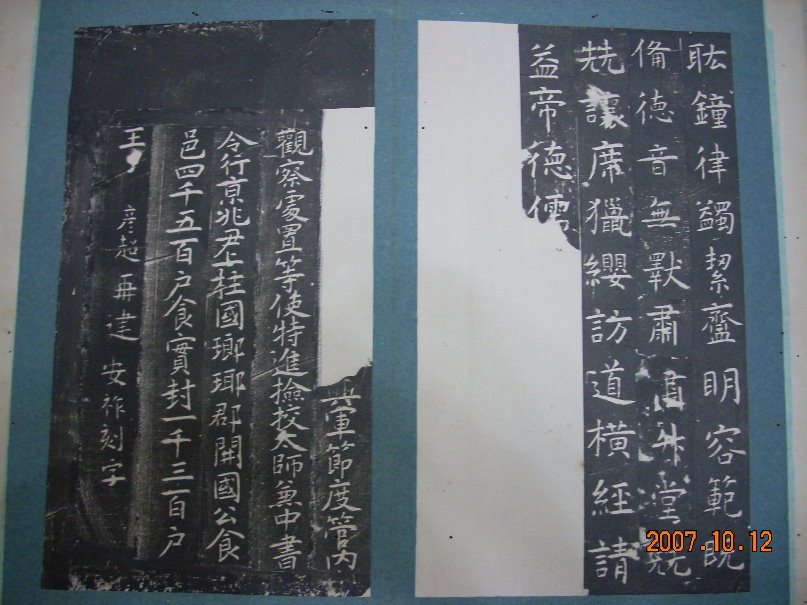 耾鐘律蠲絜齍明容範既
俻徳音無斁肅肅升堂兢
兢讓席獵纓訪道橫經請
益帝徳儒
軍節度管内
觀察處置等使特進撿挍太師兼中書
令行京兆尹上柱國瑯瑘郡開國公食
邑四千五百户食實封一千三百户
王彦超再建 安祚刻字
2007.10.12